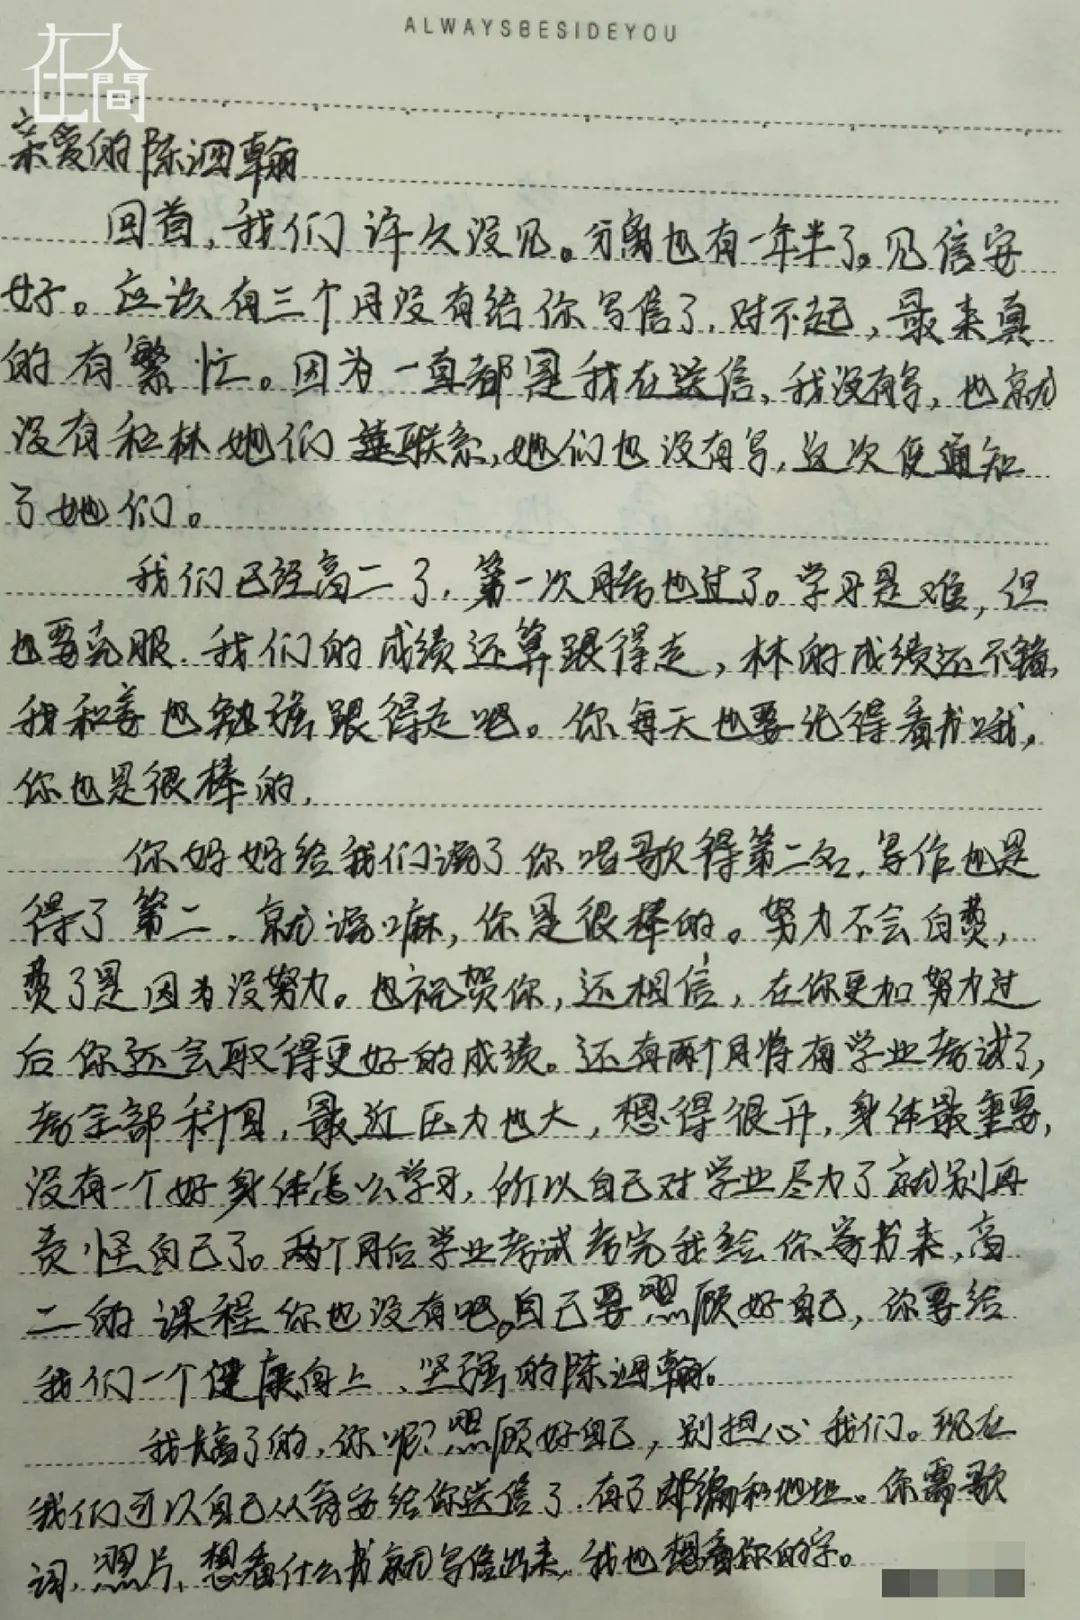 ALWAYSBESIDEYOU
在人間
亲爱的陈泗翰
回首,我们许久没见。分离也有一年半了。见信安
好。应该有三个月没有给你写信了,对不起,最来真
的有繁忙。因为一直都是我在送信,我没有写,也就
没有和林她们联系,她们也没有写,这次便通知
了她们。
我们已经高二了,第一次月考也过了。学习是难,但
也要克服.我们的成绩还算跟得走,林的成绩还不错,
我和姜也勉强跟得走吧。你每天也要记得看书哦,
你也是很棒的,
你妈妈给我们说了你唱歌得第二名,写作也是
得了第二,就说嘛,你是很棒的。努力不会白费,
费了是因为没努力。也祝贺你,还相信,在你更加努力过
后你还会取得更好的成绩。还有两个月将有学业考试了,
考全部科目,最近压力也大,想得很开,身体最重要,
没有一个好身体怎么学习,所以自己对学业尽力了就别再
责怪自己了。两个月后学业考试考完我给你寄书来,高
二的课程你也没有吧。自己要照顾好自己,你要给
我们一个健康向上、坚强的陈泗翰。
我长高了的,你呢?照顾好自己,别担心我们。现在
我们可以自己从给你送信了,有了邮编和地址。你需歌
词,照片,想看什么书就写信出来,我也想看你的字。